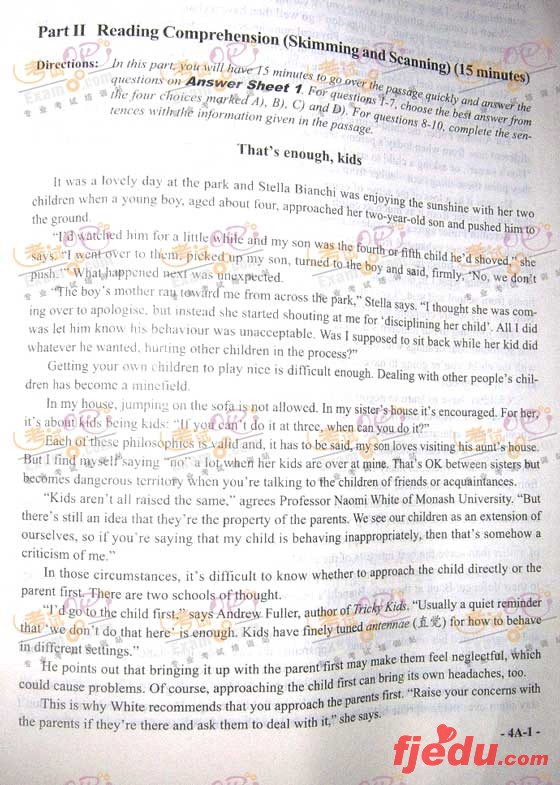 Part II Reading Comprehension (Skimming and Scanning) (15 minutes)
Directions: In this part, you will have 15 minutes to go over the passage quickly and answer the
questions on Answer Sheet 1. For questions 1-7, choose the best answer from
the four choices marked A), B), C) and D). For questions 8-10, complete the sen-
tences with the information given in the passage.
That's enough, kids
It was a lovely day at the park and Stella Bianchi was enjoying the sunshine with her two
children when a young boy, aged about four, approached her two-year-old son and pushed him to
the ground.
"I'd watched him for a little while and my son was the fourth or fifth child he'd shoved," she
says. "I went over to them, picked up my son, turned to the boy and said, firmly, 'No, we don't
push.'" What happened next was unexpected.
"The boy's mother ran toward me from across the park," Stella says. "I thought she was com-
ing over to apologise, but instead she started shouting at me for 'disciplining her child'. All I did
was let him know his behaviour was unacceptable. Was I supposed to sit back while her kid did
whatever he wanted, hurting other children in the process?"
Getting your own children to play nice is difficult enough. Dealing with other people's chil-
dren has become a minefield.
In my house, jumping on the sofa is not allowed. In my sister's house it's encouraged. For her,
it's about kids being kids: "If you can't do it at three, when can you do it?"
Each of these philosophies is valid and, it has to be said, my son loves visiting his aunt's house.
But I find myself saying "no" a lot when her kids are over at mine. That's OK between sisters but
becomes dangerous territory when you're talking to the children of friends or acquaintances.
"Kids aren't all raised the same," agrees Professor Naomi White of Monash University. "But
there's still an idea that they're the property of the parents. We see our children as an extension of
ourselves, so if you're saying that my child is behaving inappropriately, then that's somehow a
criticism of me."
In those circumstances, it's difficult to know whether to approach the child directly or the
parent first. There are two schools of thought.
"I'd go to the child first," says Andrew Fuller, author of Tricky Kids. "Usually a quiet reminder
that 'we don't do that here' is enough. Kids have finely tuned antennae (直觉) for how to behave
in different settings."
He points out that bringing it up with the parent first may make them feel neglectful, which
could cause problems. Of course, approaching the child first can bring its own headaches, too.
This is why White recommends that you approach the parents first. "Raise your concerns with
the parents if they're there and ask them to deal with it," she says.
- 4A-1 -
fjedu.com